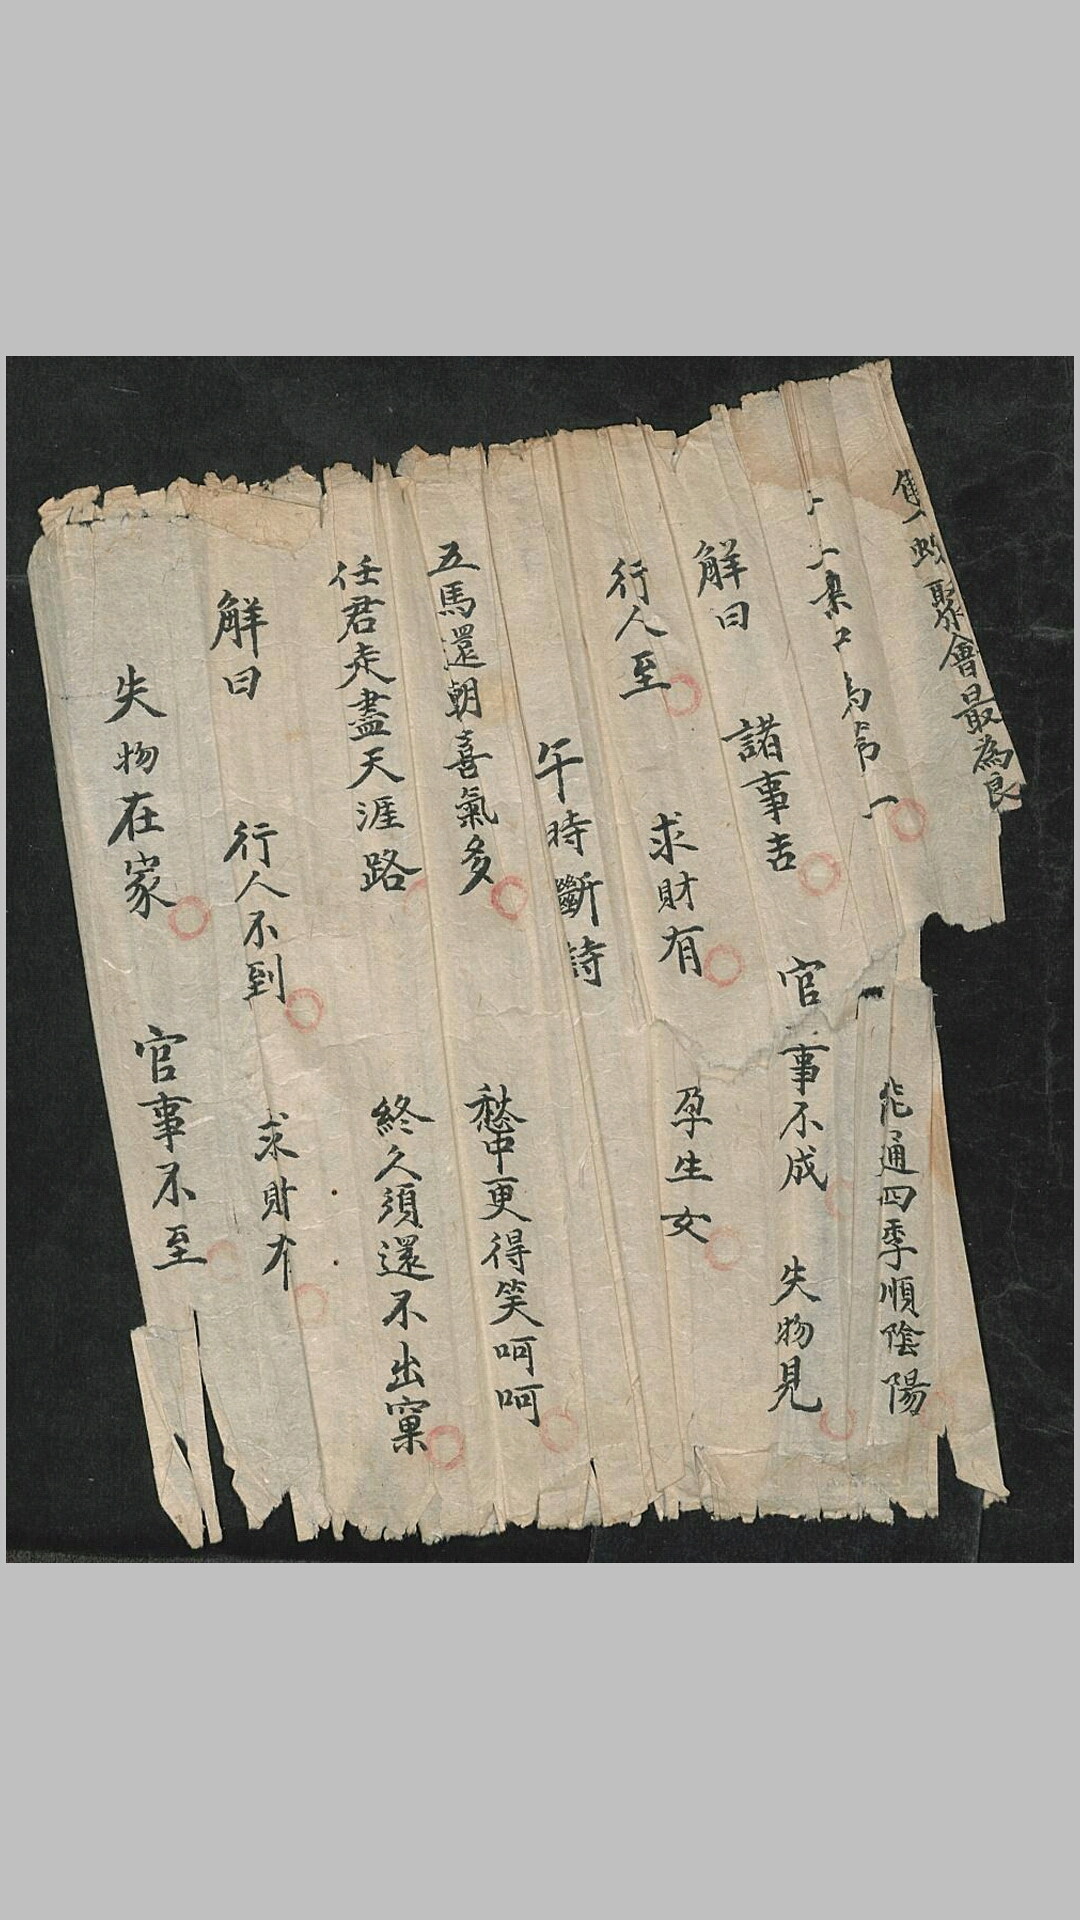 隻蛟聚會最為良
為第一
能通四季順陰陽
解曰 諸事吉 官事不成 失物見
行人至 求財有 孕生女
午時斷詩
五馬還朝喜氣多 愁中更得笑呵呵
任君走盡天涯路 終久須還不出窠
解曰 行人不到 求財有
失物在家 官事不至